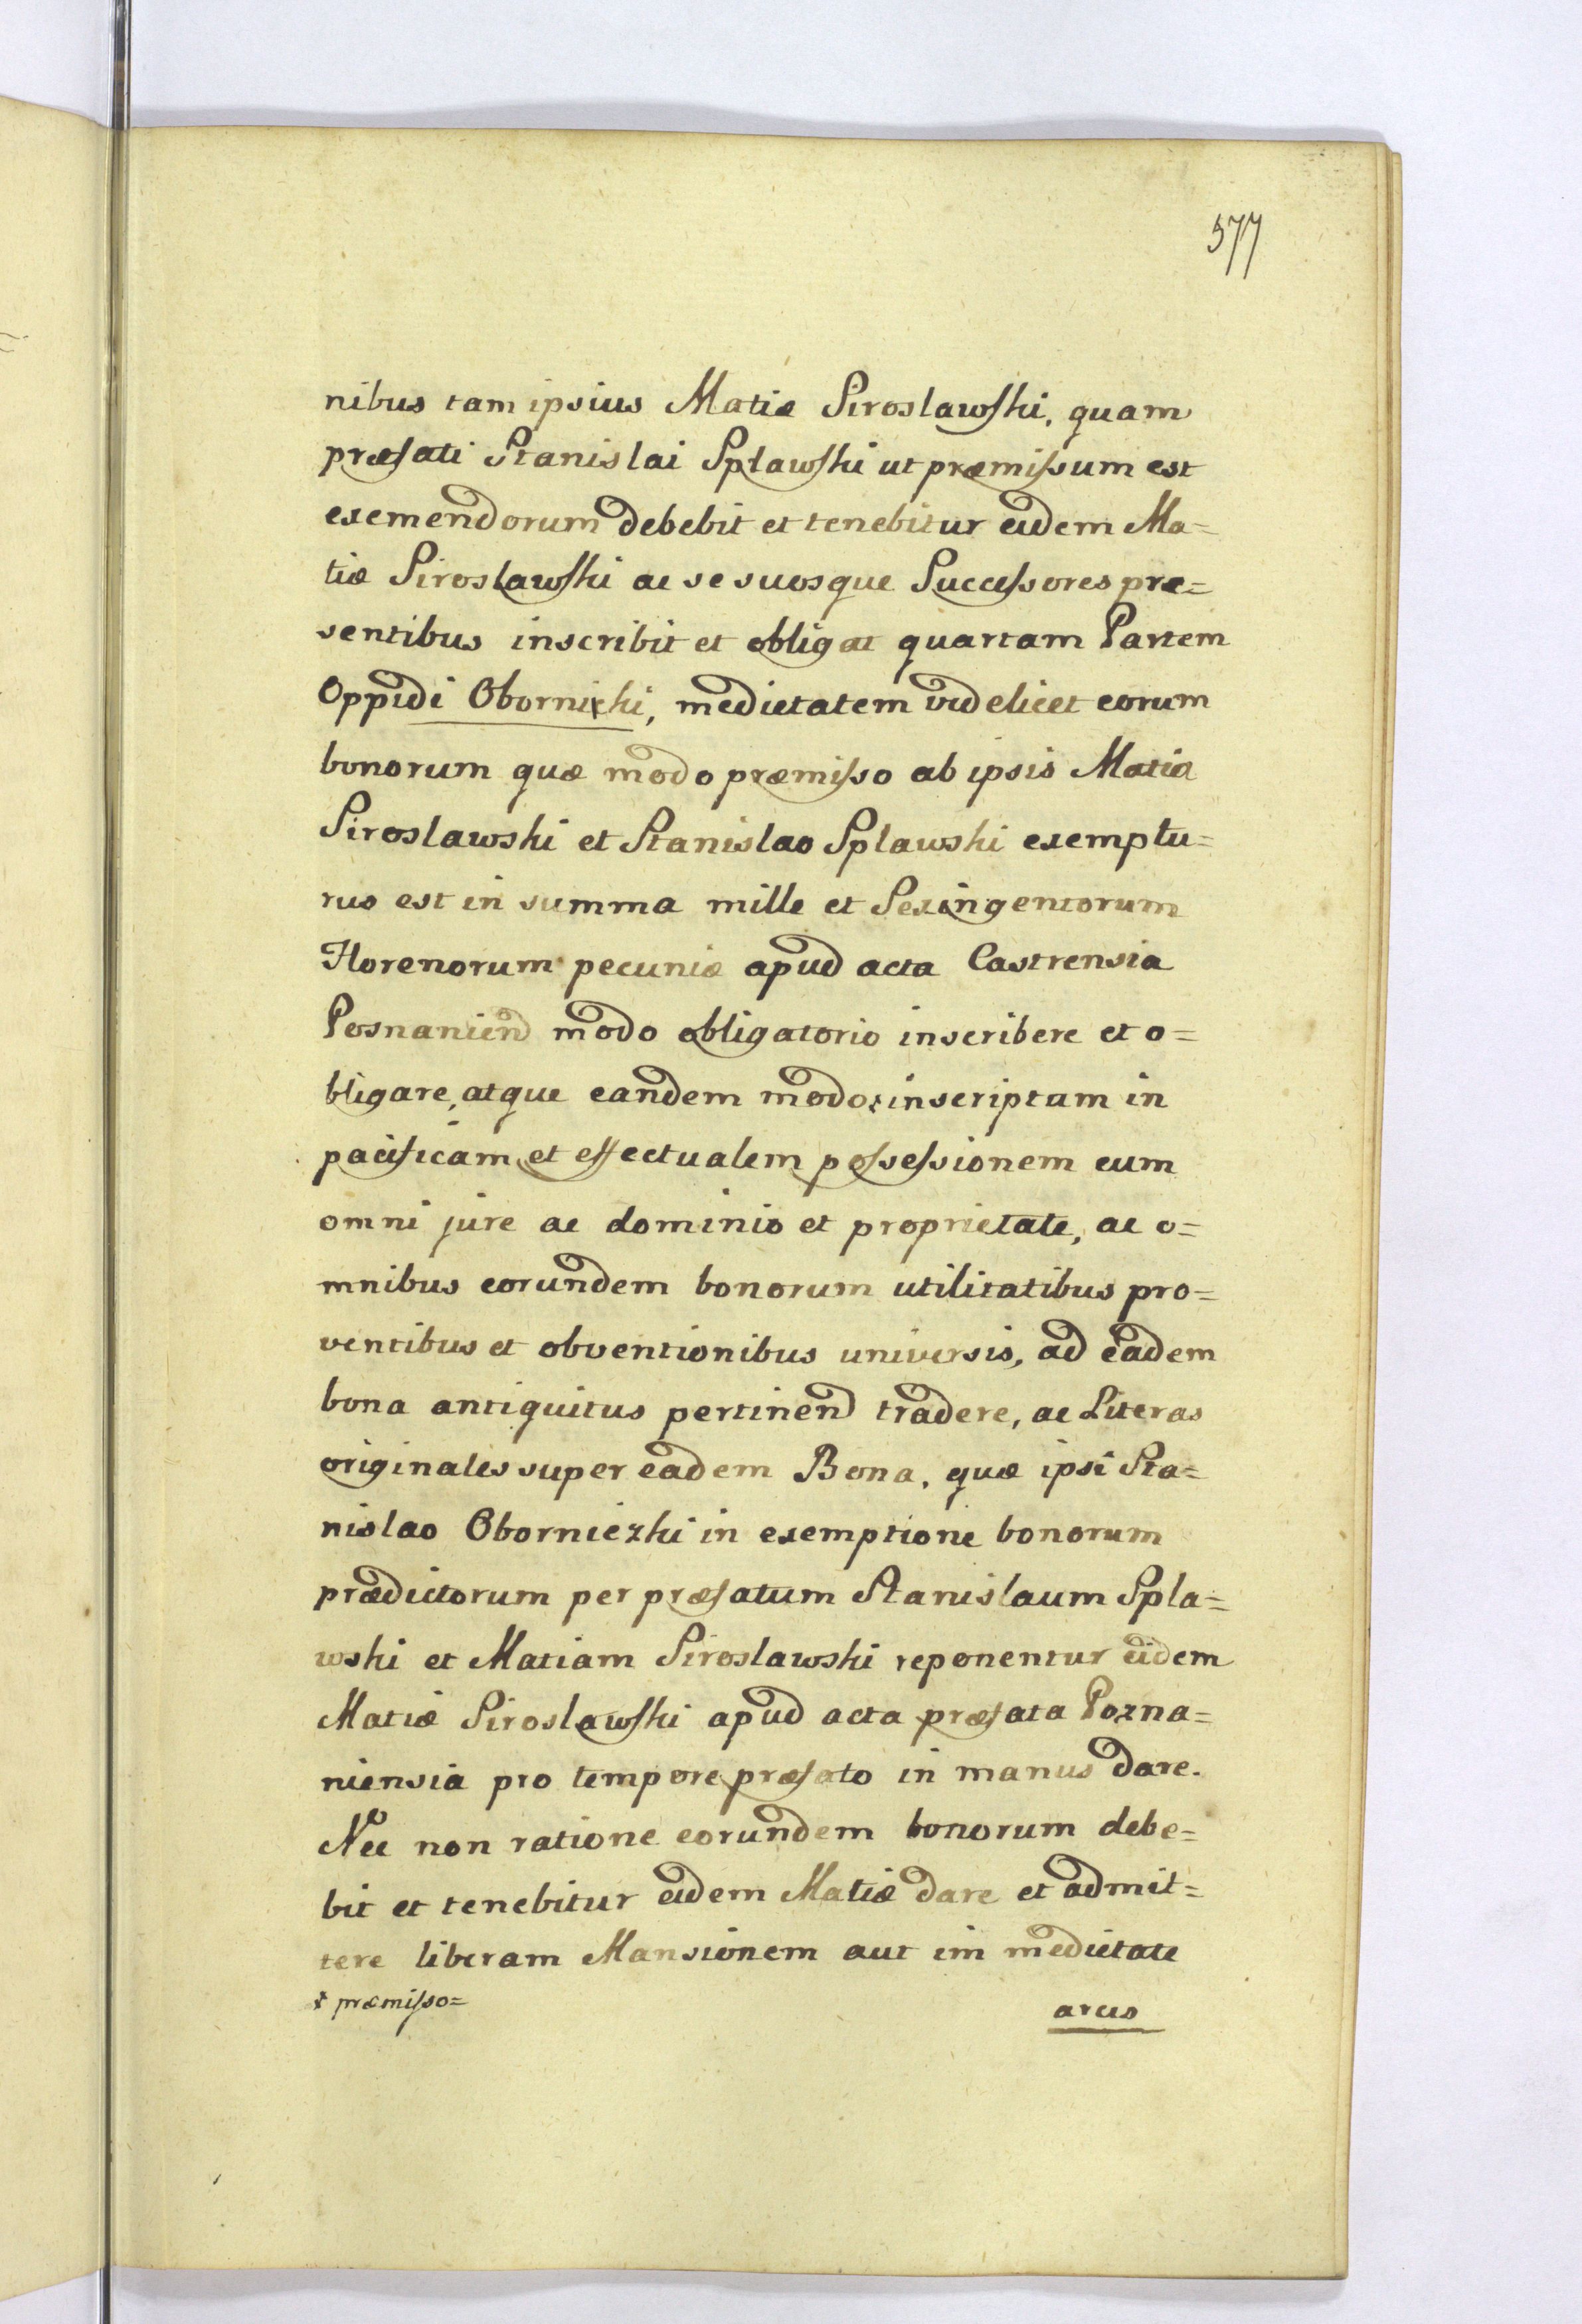 577
nibus tam ipsius Matiæ Siroslawski, quam
præfati Stanislai Splawski ut præmissum est
exemendorum debebit et tenebitur eidem Ma=
tiæ Siroslawski ac se suosque Successores præ=
sentibus inscribit et obligat quartam Partem
Oppidi Obornizki, medietatem videlicet eorum
bonorum quæ modo præmisso ab ipsis Matia
Siroslawski et Stanislao Splawski exemptu=
rus est in summa mille et Sexingentorum
Florenorum pecuniæ apud acta Castrensia
Posnanien modo obligatorio inscribere et o=
bligare, atque eandem modo x inscriptam in
pacificam et effectualem possessionem cum
omni jure ac dominio et proprietate, ac o=
mnibus eorundem bonorum utilitatibus pro=
ventibus et obventionibus universis, ad eadem
bona antiquitus pertinen tradere, ac Literas
originales super eadem Bona, quæ ipsi Sta=
nislao Oborniezki in exemptione bonorum
prædictorum per præfatum Stanislaum Spla=
wski et Matiam Siroslawski reponentur eidem
Matiæ Siroslawski apud acta præfata Pozna=
niensia pro tempore præfato in manus dare.
Nec non ratione eorundem bonorum debe=
bit et tenebitur eidem Matiæ dare et admit=
tere liberam Mansionem aut in medietate
x præmisso=
arcis